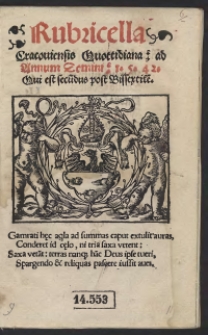 Rubricella
Cracouiensis Quottidiana: ad
Annum Domini: 1. 5. 4 2.
Qui est secūdus post Bissextilē.
Gamrati hęc aq̃la ad summas caput extulit auras,
Conderet id cęlo, ni tria saxa vetent:
Saxa vetāt: terras nanq; hāc Deus ipse tueri,
Spargendo & reliquas pascere iussit aues.
14.553